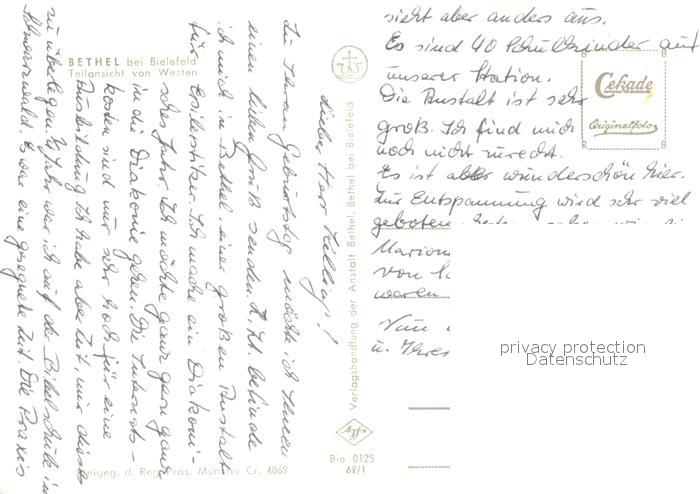 BETHEL bei Bielefeld
Teilansicht von Westen
Lieber Herr Killius!
Zu Ihrem Geburtstag möchte ich Ihnen
einen lieben Gruß senden. Z. Zt. befinde
ich mich in Bethel einer großen Anstalt
für Epileptiker. Ich mache ein Diakoni-
sches Jahr. Ich möchte ganz gern ganz
in die Diakonie gehen. Die Internats-
kosten sind nur sehr hoch für eine
Ausbildung. Ich habe aber Zeit, mir dieses
zu überlegen. Vor Jahr war ich auf der Bibelschule im
Schwarzwald. Es war eine gesegnete Zeit. Die Praxis
sieht aber anders aus.
Es sind 40 Schulkinder auf
unserer Station.
Die Anstalt ist sehr
groß. Ich find mich
noch nicht zurecht.
Es ist aber wunderschön hier.
Zur Entspannung wird sehr viel
geboten.
von
waren
Nun
u. Ihre
Verlagshandlung der Anstalt Bethel, Bethel bei Bielefeld
Cekade
Originalfoto
Agfa
Bie 0125
62/1
Freigeg. d. Reg. Präs. Münster Cr. 4069
privacy protection
Datenschutz